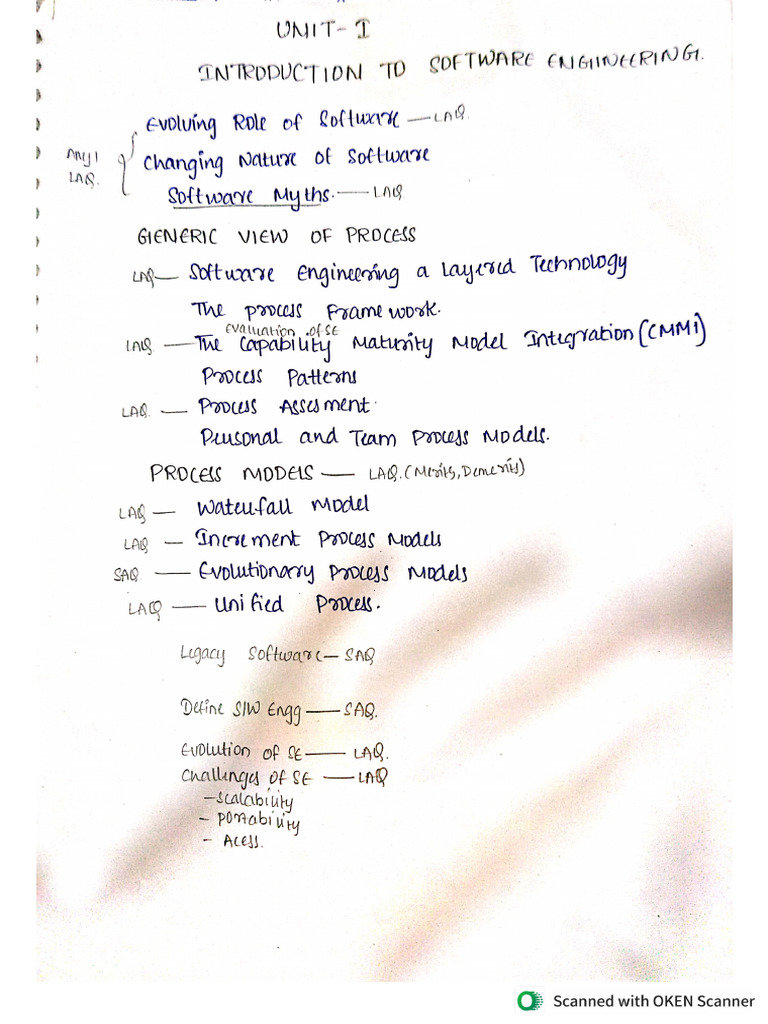 UNIT-I
INTRODUCTION TO SOFTWARE ENGINEERING.
Evolving Role of Software — LAQ.
Any 1 LAQ.
Changing Nature of Software
Software Myths. — LAQ
GENERIC VIEW OF PROCESS
LAQ — Software Engineering a Layered Technology
The process Framework.
evaluation of SE
LAQ — The Capability Maturity Model Integration (CMMI)
Process Patterns
LAQ. — Process Assesment.
Personal and Team Process Models.
PROCESS MODELS — LAQ. (Merits, Demerits)
LAQ — Waterfall Model
LAQ — Increment Process Models
SAQ — Evolutionary Process Models
LAQ — Unified Process.
Legacy Software — SAQ
Define S/W Engg — SAQ.
Evolution of SE — LAQ.
Challenges of SE — LAQ
- Scalability
- Portability
- Acess.
Scanned with OKEN Scanner